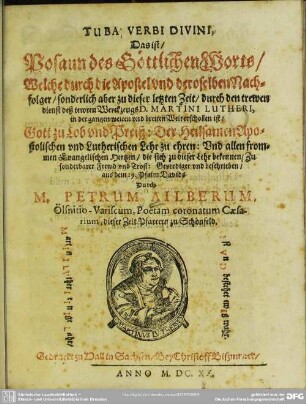 TUBA VERBI DIVINI,
Das ist/
Posaun des Göttlichen Worts/
Welche durch die Apostel vnd deroselben Nach-
folger/ sonderlich aber zu dieser letzten Zeit/ durch den trewen
dienst deß Werckzeugs D. MARTINI LUTHERI,
in der gantzen weiten vnd breiten Welt erschollen ist/
Gott zu Lob vnd Preiß: Der Heilsamen Apo-
stolischen vnd Lutherischen Lehr zu ehren: Vnd allen from-
men Evangelischen Hertzen/ die sich zu dieser Lehr bekennen/ Zu
sonderbarer Frewd vnd Trost: Geprediget vnd beschrieben/
aus dem 19. Psalm Davids/
Durch
M. PETRUM AILBERUM,
Olsnitio-Variscum, Poëtam coronatum Cæsa-
rium, dieser Zeit Pfarrern zu Schönfels.
Gedruckt zu Hall in Sachsen/ Bey Christoff Bißmarck/
ANNO M. DC. XX.